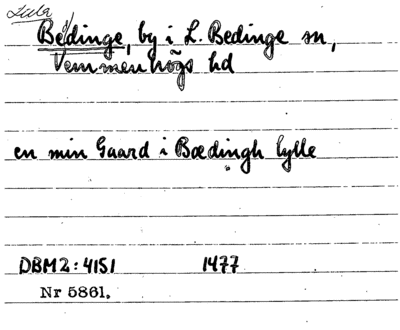 Bedinge, by i L. Bedinge sn,
Vemmenhögs hd
en min Gaard i Bædingh lylle
DBM2:4151 1477
Nr 5861.